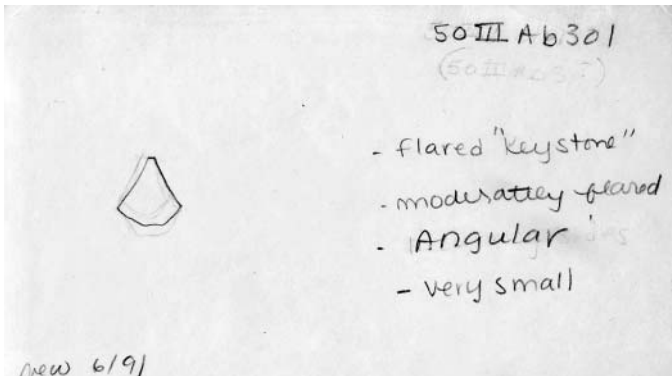 50 III Ab 301
(50 III Ab 3 I)
- flared "keystone"
- moderatley flared
- Angular
- very small
new 6/91